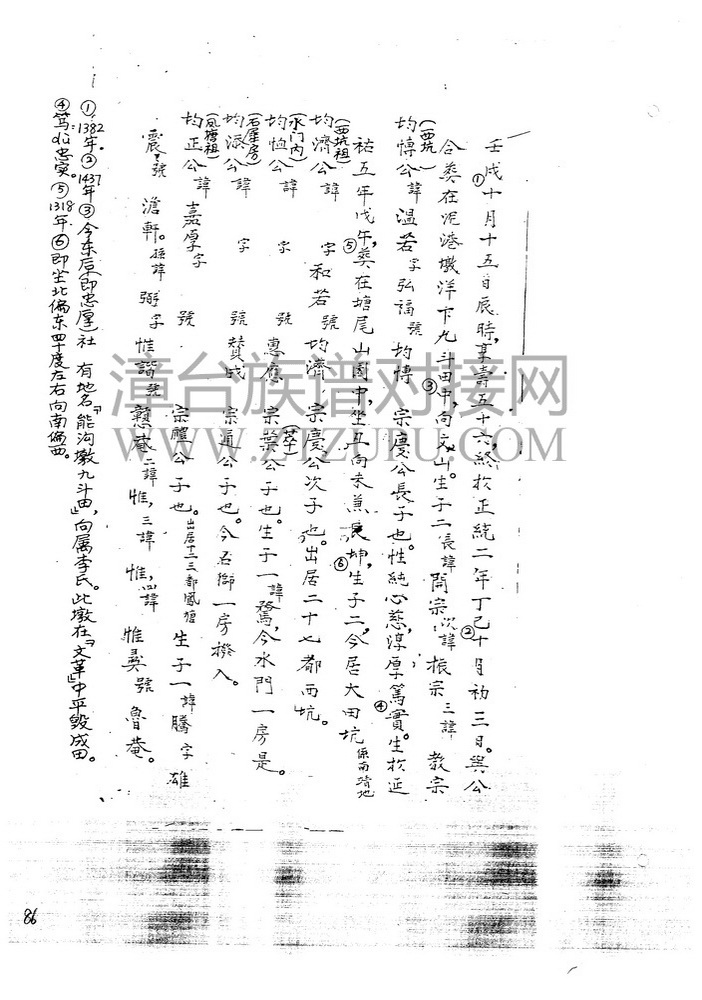 壬戌①十月十五日辰時,享壽五十六,終於正統二年丁巳②十月初三日。與公
合葬在泥港墩洋卞九斗田中③,向文山。生子二長諱開宗次諱振宗三諱教宗
(西坑)
均博公諱溫若字弘福號均博 宗慶公長子也。性純心慈,淳厚篤實④。生於延
祐五年戊午⑤,葬在塘尾山園中,坐丑向未兼艮坤⑥,生子二,今居大田坑係南靖地
(西坑祖)
均濟公諱 字和若號均濟,宗慶公次子也。出居二十七都西坑。
(水门内)
均恤公諱 字 號惠應 宗葉(萃)公子也。生子一諱騖,今水門一房是。
(石屋房)
均派公諱 字 號贊成 宗道公子也。今石獅一房撥入。
(鳳塘祖)
均正公諱嘉厚字 號 宗體公子也。出居十二三都鳳塘 生子一諱騰字雄
震號滄軒。孫諱弼字惟諮號懃庵二諱惟,三諱惟,四諱惟彛號魯菴。
①1382年。②1437年③今东后即忠厚社 有地名『能沟墩九斗田』,向属李氏。此墩在『文革』中平毁成田。
④笃:dǔ忠实。⑤1318年⑥即坐北偏东四十度左右向南偏西。
漳台族谱对接网
WWW.ZTZUPU.COM
86